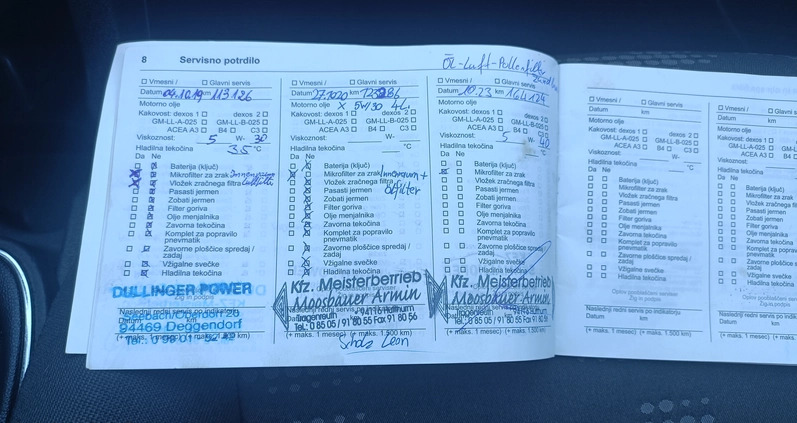 8 Servisno potrdilo
Vmesni / Glavni servis
Datum 04.10.19 km 113126
Motorno olje
Kakovost: dexos 1 dexos 2
GM-LL-A-025 GM-LL-B-025
ACEA A3 B4 C3
Viskoznost: 5 W- 30
Hladilna tekočina 35 °C
Da Ne
Baterija (ključ)
Mikrofilter za zrak Innenraum
Vložek zračnega filtra Luftfilter
Pasasti jermen
Zobati jermen
Filter goriva
Olje menjalnika
Zavorna tekočina
Komplet za popravilo
pnevmatik
Zavorne ploščice spredaj /
zadaj
Vžigalne svečke
Hladilna tekočina
DULLINGER POWER
Žig in podpis
94469 Deggendorf
(+ maks. 1 mesec) (+ maks. 1.500 km)
Vmesni / Glavni servis
Datum km
Motorno olje X 5W/30 4L.
Kakovost: dexos 1 dexos 2
GM-LL-A-025 GM-LL-B-025
ACEA A3 B4 C3
Viskoznost: W-
Hladilna tekočina °C
Da Ne
Baterija (ključ)
Mikrofilter za zrak
Vložek zračnega filtra
Pasasti jermen
Zobati jermen
Filter goriva
Olje menjalnika
Zavorna tekočina
Komplet za popravilo
pnevmatik
Zavorne ploščice spredaj /
zadaj
Vžigalne svečke
Hladilna tekočina
Kfz. Meisterbetrieb
Moosbauer Armin
Tel.: 0 85 05 / 91 80 55 Fax 91 80 56
(+ maks. 1 mesec) (+ maks. 1.500 km)
Öl-Luft-Pollenfilter
Vmesni / Glavni servis
Datum 10.23 km 164124
Motorno olje
Kakovost: dexos 1 dexos 2
GM-LL-A-025 GM-LL-B-025
ACEA A3 B4 C3
Viskoznost: 5 W- 40
Hladilna tekočina °C
Da Ne
Baterija (ključ)
Mikrofilter za zrak
Vložek zračnega filtra
Pasasti jermen
Zobati jermen
Filter goriva
Olje menjalnika
Zavorna tekočina
Komplet za popravilo
pnevmatik
Zavorne ploščice spredaj /
zadaj
Vžigalne svečke
Hladilna tekočina
Kfz. Meisterbetrieb
Moosbauer Armin
Tel.: 0 85 05 / 91 80 55 Fax 91 80 56
(+ maks. 1 mesec) (+ maks. 1.500 km)
Vmesni / Glavni servis
Datum km
Motorno olje
Kakovost: dexos 1 dexos 2
GM-LL-A-025 GM-LL-B-025
ACEA A3 B4 C3
Viskoznost: W-
Hladilna tekočina °C
Da Ne
Baterija (ključ)
Mikrofilter za zrak
Vložek zračnega filtra
Pasasti jermen
Zobati jermen
Filter goriva
Olje menjalnika
Zavorna tekočina
Komplet za popravilo
pnevmatik
Zavorne ploščice spredaj /
zadaj
Vžigalne svečke
Hladilna tekočina
Žig in podpis
Naslednji redni servis po indikatorju
Datum km
(+ maks. 1 mesec) (+ maks. 1.500 km)
Vmesni / Glavni
Datum km
Motorno olje
Kakovost: dexos 1
GM-LL-A-025
ACEA A3
Viskoznost:
Hladilna tekočina
Da Ne
Baterija (ključ)
Mikrofilter za zrak
Vložek zračnega filtra
Pasasti jermen
Zobati jermen
Filter goriva
Olje menjalnika
Zavorna tekočina
Komplet za popravilo
pnevmatik
Zavorne ploščice
zadaj
Vžigalne svečke
Hladilna tekočina
Naslednji redni servis
Datum
(+ maks. 1 mesec)